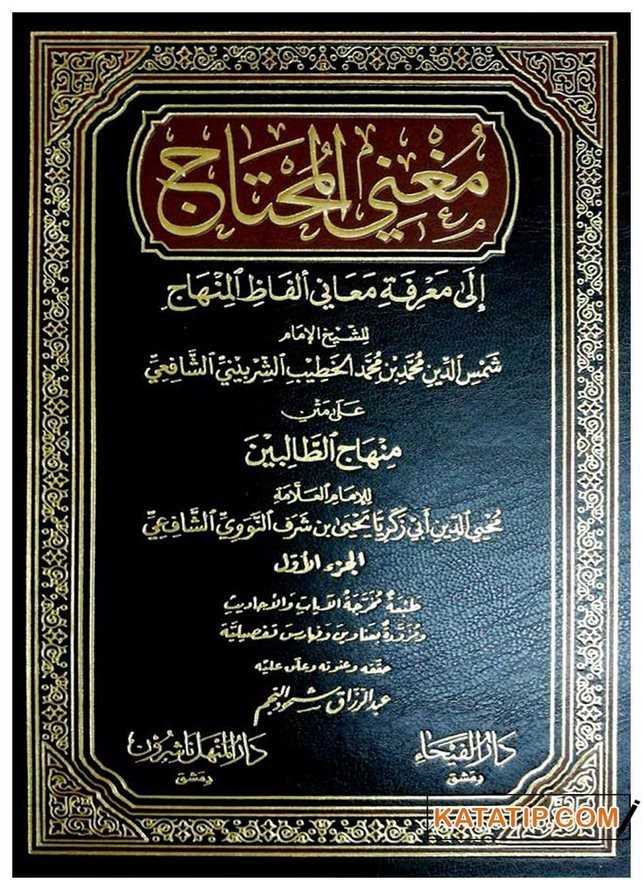 مُغْنِي المُحْتَاج
إِلَى مَعْرِفَةِ مَعَانِي أَلْفَاظِ المِنْهَاجِ
لِلشَّيْخِ الإِمَامِ
شَمْسِ الدِّينِ مُحَمَّدِ بْنِ مُحَمَّد الخَطِيبِ الشِّرْبِينِيِّ الشَّافِعِيِّ
عَلَى مَتْنِ
مِنْهَاجِ الطَّالِبِينَ
لِلإِمَامِ العَلَّامَةِ
مُحْيِي الدِّينِ أَبِي زَكَرِيَّا يَحْيَى بْنِ شَرَفِ النَّوَوِيِّ الشَّافِعِيِّ
الجزء الأوّل
طَبْعَةٌ مُخَرَّجَةُ الآيَاتِ وَالأَحَادِيثِ
وَمُزَوَّدَةٌ بِعَنَاوِينَ وَفَهَارِسَ تَفْصِيلِيَّة
حققه وعنونه وعلق عليه
عبد الرزاق شحود النجم
دَارُ الفَيْحَاءِ
دِمَشْق
دَارُ المَنْهَلِ نَاشِرُون
دِمَشْق
KATATIP.COM